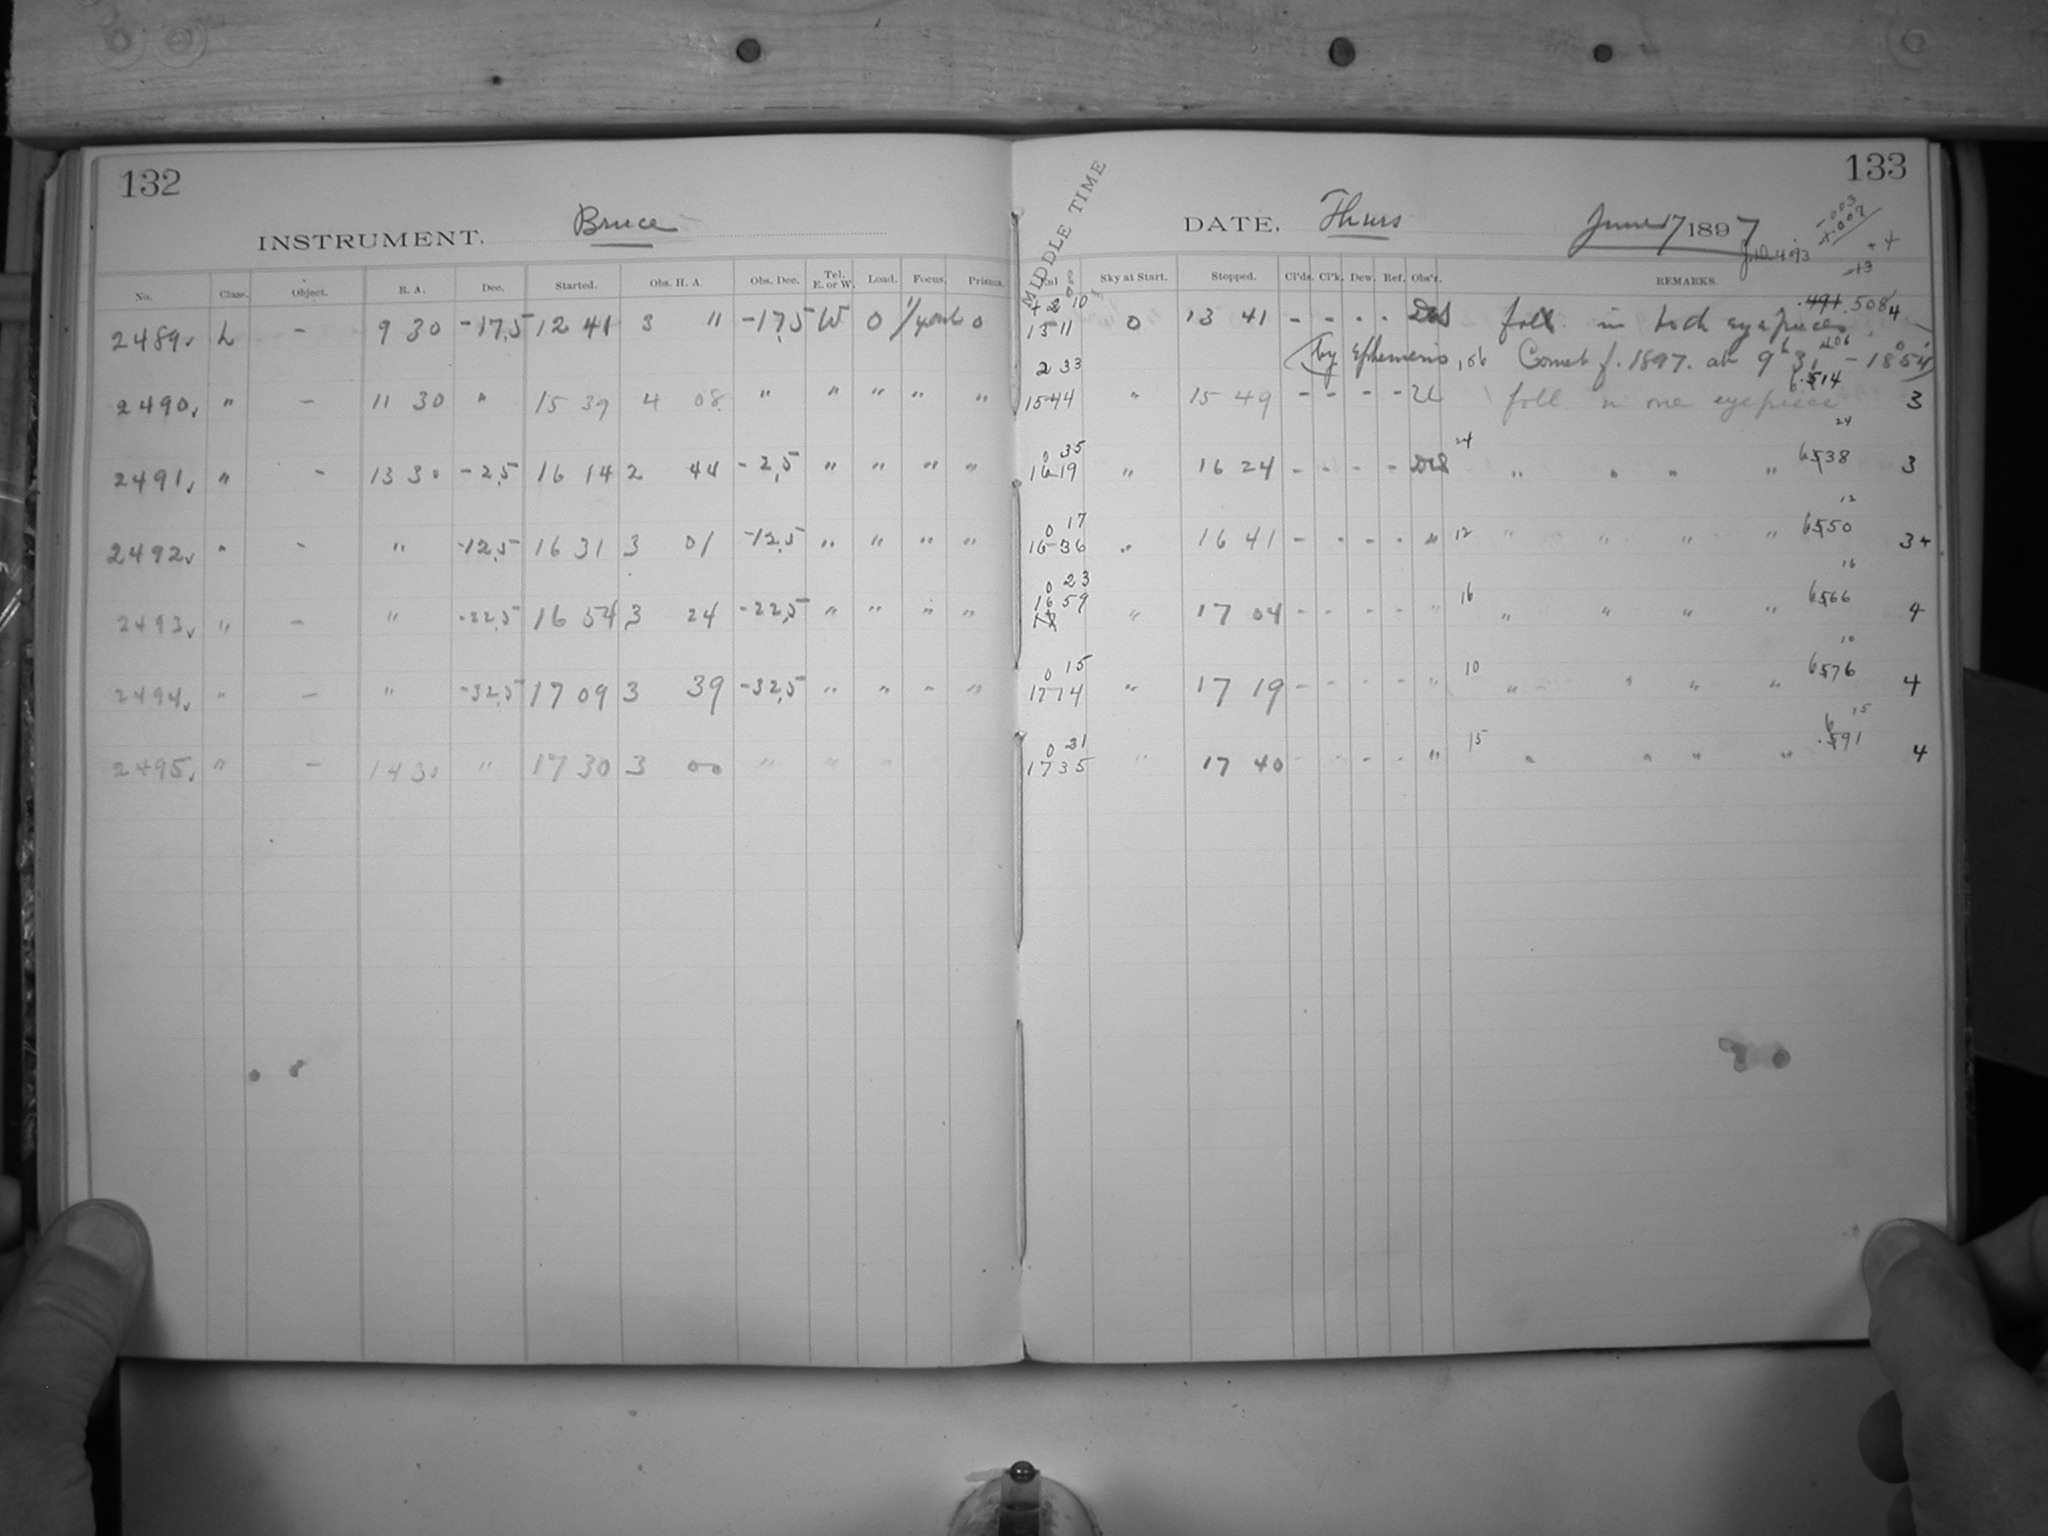 132
INSTRUMENT. Bruce
No. Class. Object. R. A. Dec. Started. Obs. H. A. Obs. Dec. Tel. E. or W. Load. Focus. Prisms.
2489 L - 9 30 -17,5 12 41 3 11 -17,5 W 0 0
2490 " - 11 30 " 15 39 4 08 " " " " "
2491 " - 13 30 -2,5 16 14 2 44 -2,5 " " " "
2492 " - " -12,5 16 31 3 01 -12,5 " " " "
2493 " - " -22,5 16 54 3 24 -22,5 " " " "
2494 " - " -32,5 17 09 3 39 -32,5 " " " "
2495 " - 14 30 " 17 30 3 00 " " " "
133
MIDDLE TIME
DATE, Thurs June 17 1897
Sky at Start. Stopped. Cl'ds. Cl'k. Dew. Ref. Obs'r. REMARKS.
.491 .508
13 11 0 13 41 - - - - foll. in both eyepieces 4
2 33 (by Ephemeris Comet f. 1897. at 9h 31 - 18° 54')
6.514
15 44 " 15 49 - - - - foll in one eyepiece 3
0 35 24 24
16 19 " 16 24 - - - - " " " " 6538 3
0 17 12 12
16 36 " 16 41 - - - - " " " " " 6550 3+
0 23 16 16
16 59 " 17 04 - - - - " " " " " 6566 4
0 15 10 10
17 14 " 17 19 - - - - " " " " " 6576 4
0 21 15 15
17 35 " 17 40 - - - - " " " " " .591 4